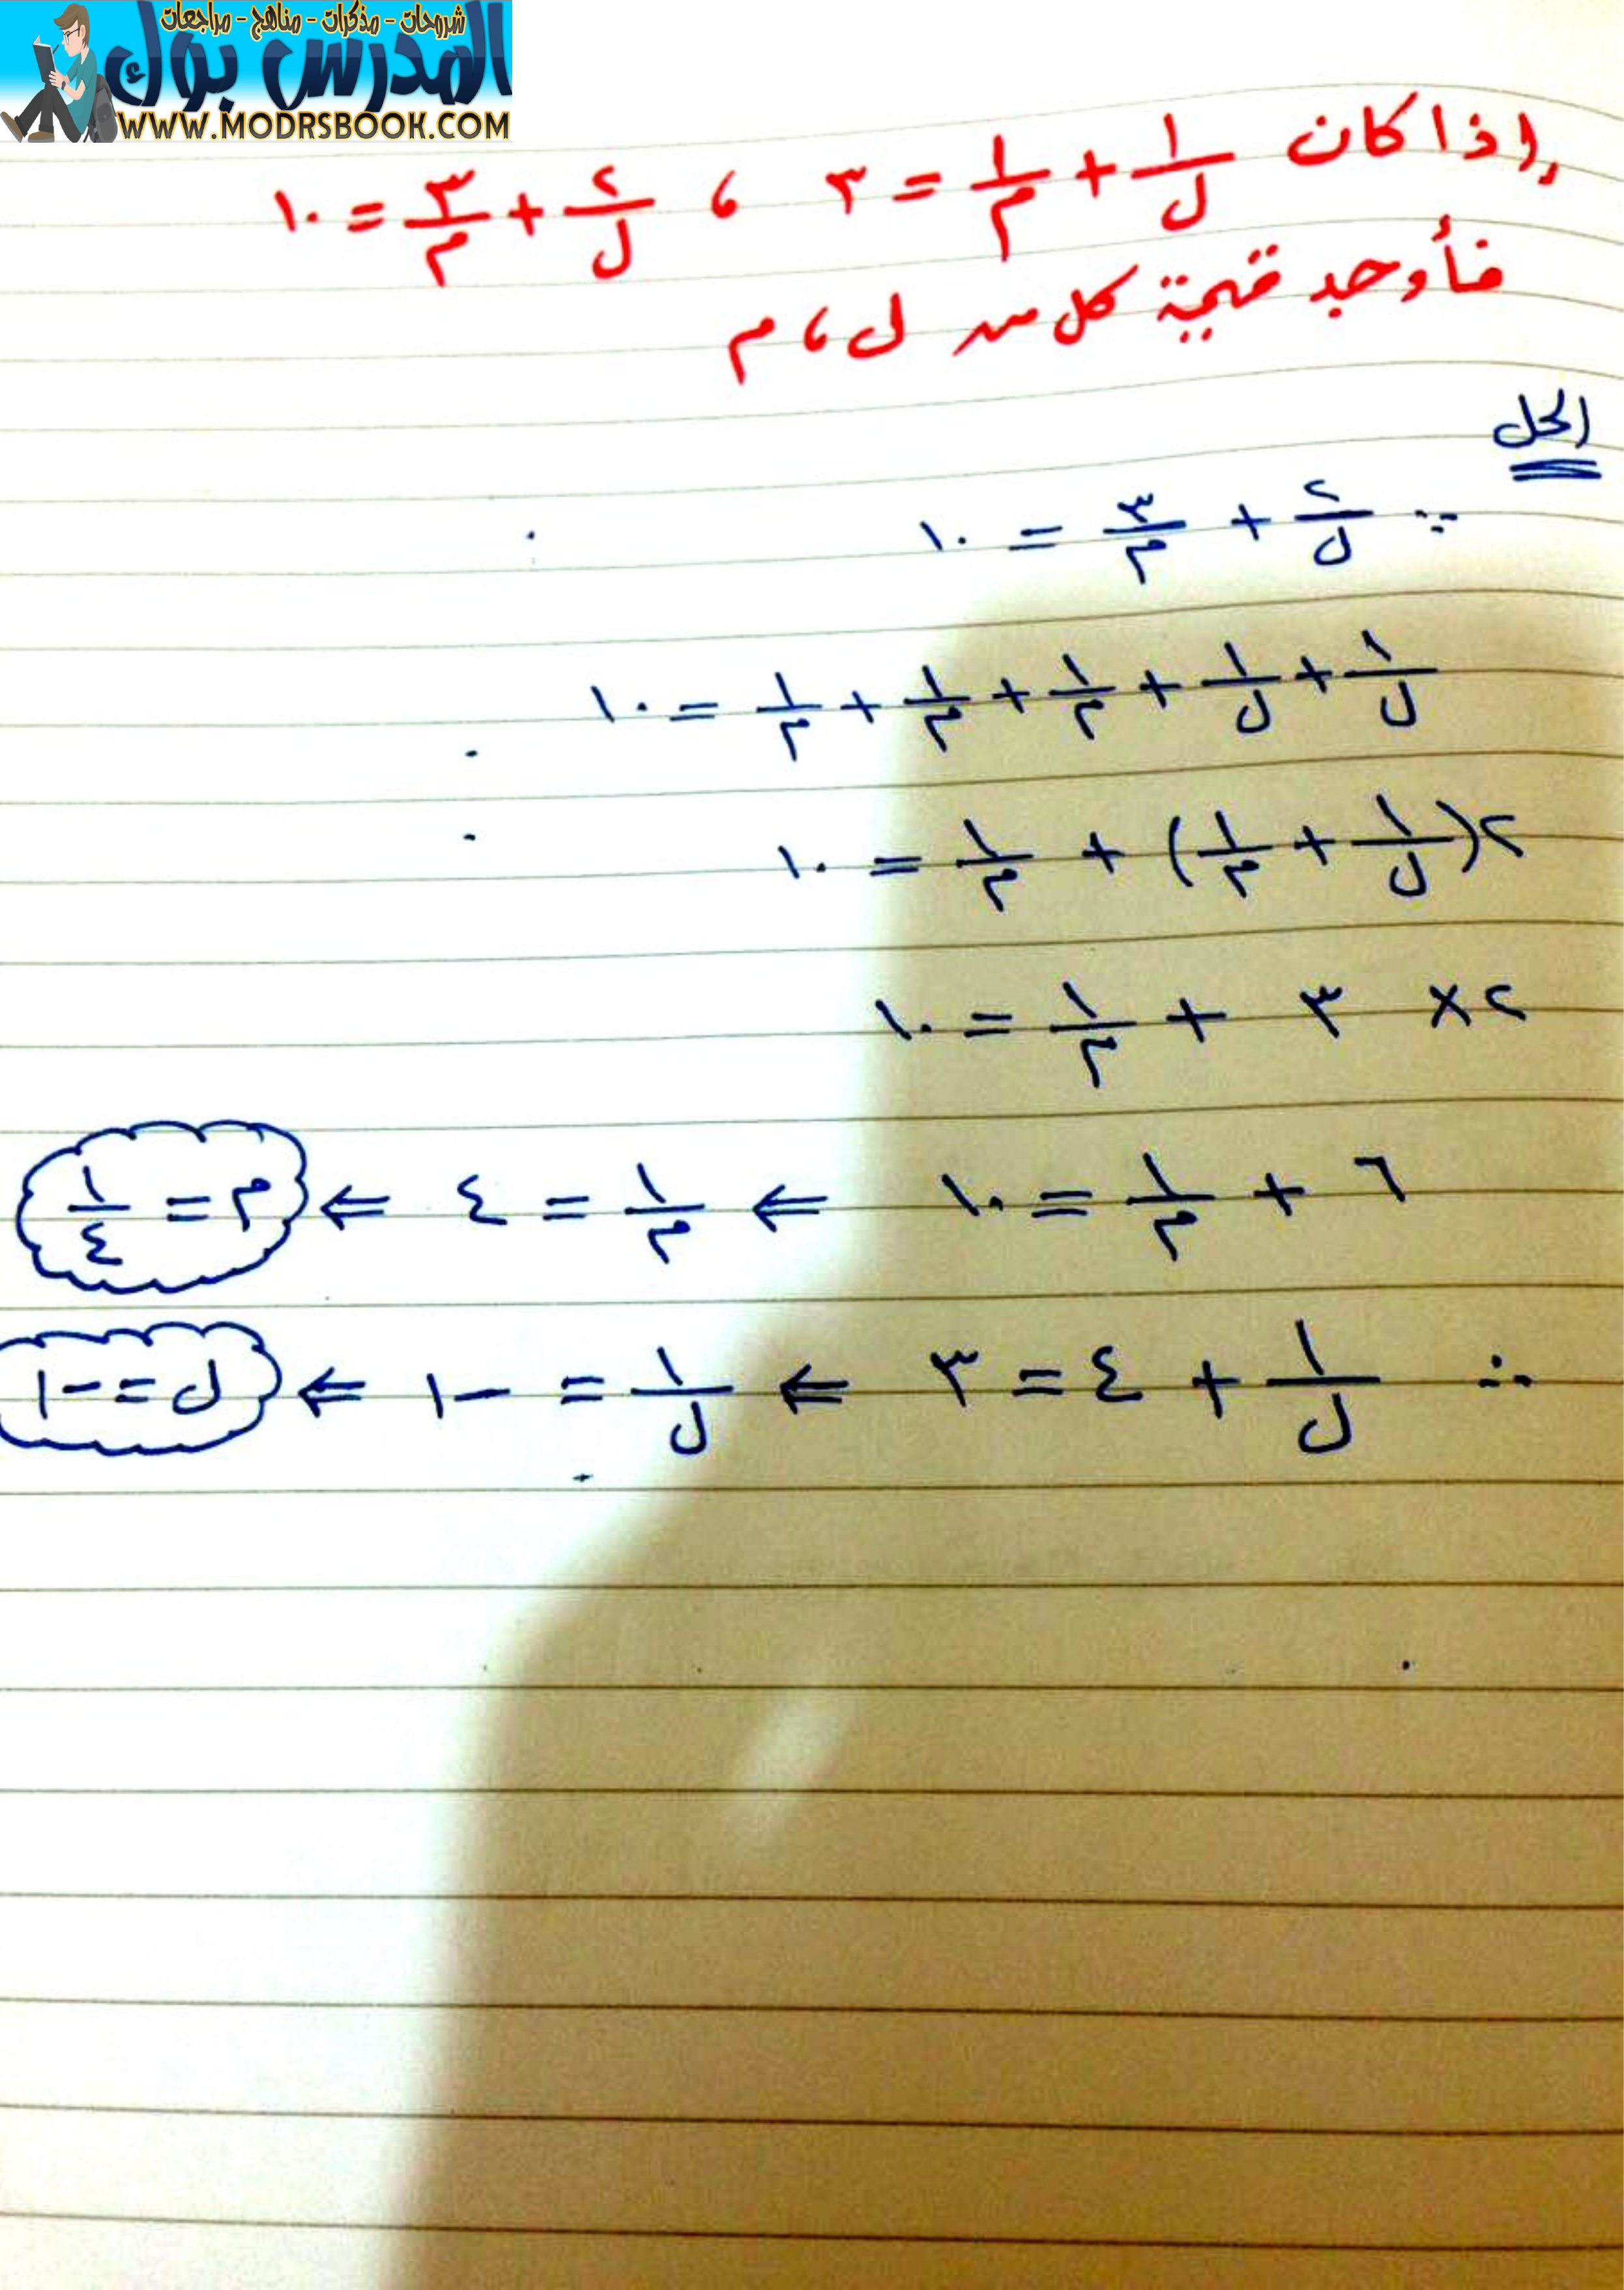 شروحات - مذكرات - مناهج - مراجعات
المدرس بوك
WWW.MODRSBOOK.COM
إذا كان ١/ل + ١/م = ٣ ، ٢/ل + ٣/م = ١٠
فأوجد قيمة كل من ل ، م
الحل
∵ ٢/ل + ٣/م = ١٠
١/ل + ١/ل + ١/م + ١/م + ١/م = ١٠
٢(١/ل + ١/م) + ١/م = ١٠
٢ × ٣ + ١/م = ١٠
٦ + ١/م = ١٠ ⇐ ١/م = ٤ ⇐ م = ١/٤
∴ ١/ل + ٤ = ٣ ⇐ ١/ل = -١ ⇐ ل = -١